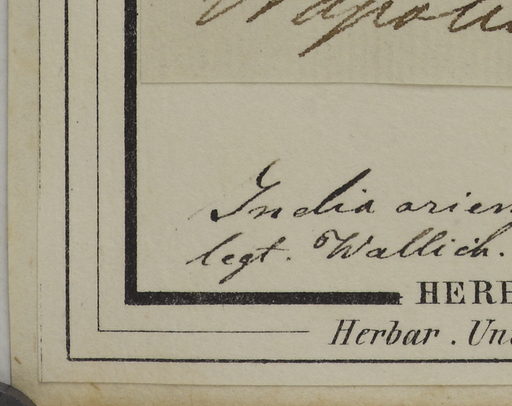 India orien
legt. Wallich.
HERB
Herbar. Un